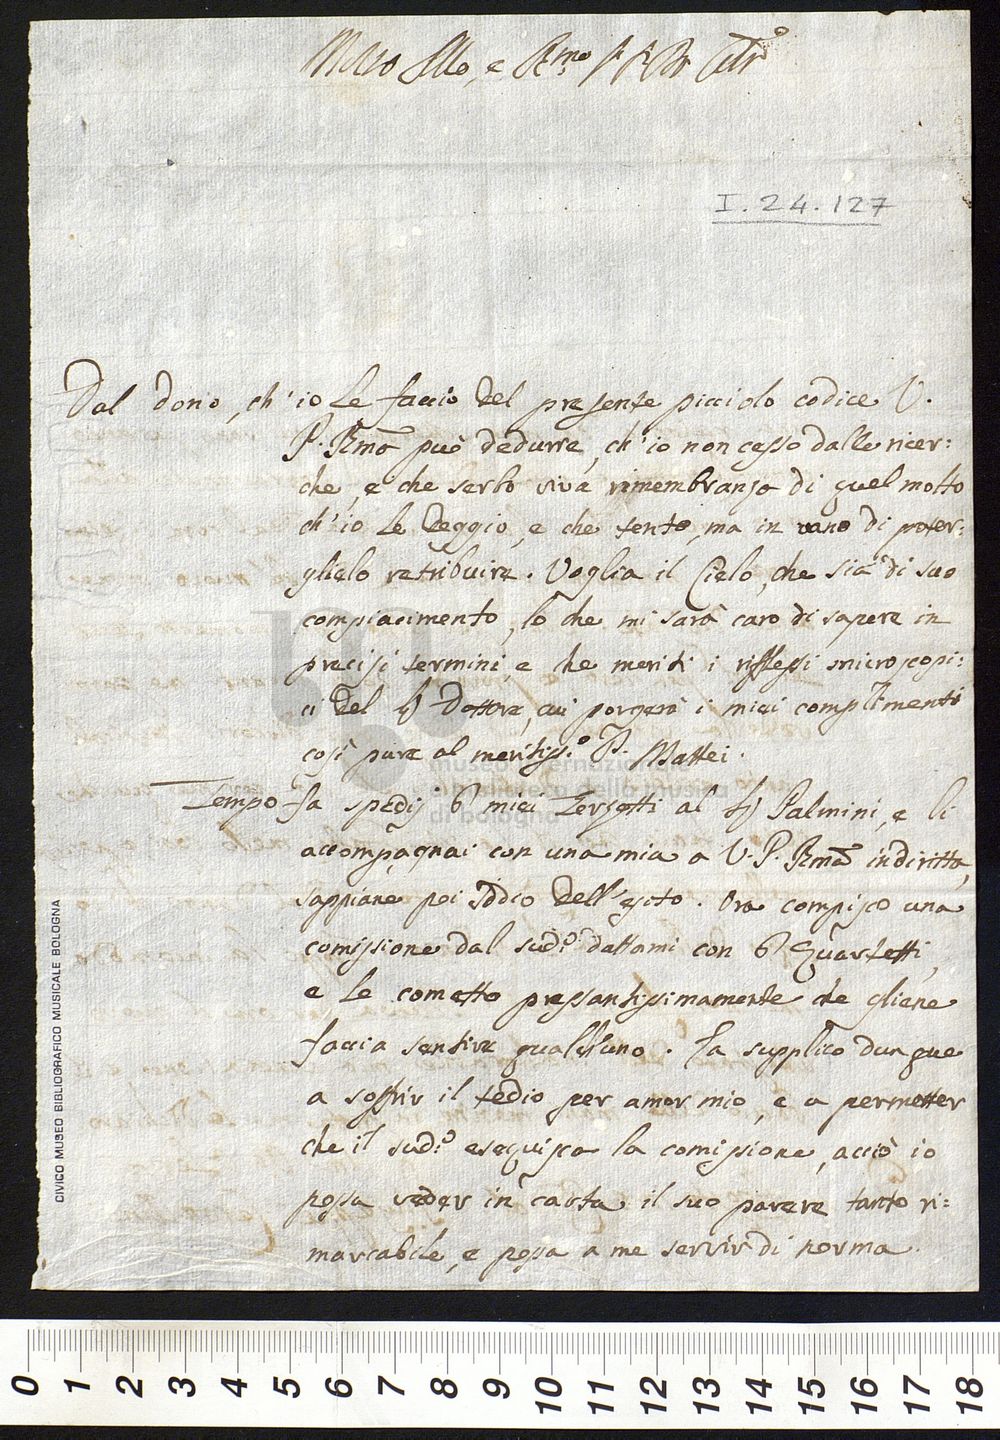 Illo, e Rmo
I. 24. 127
Dal dono, ch'io Le faccio del presente picciolo codice V.
P. Rma può dedurre, ch'io non cesso dalle ricer:
che, e che serbo viva rimembranza di quel molto
ch'io Le deggio, e che tento, ma in vano di poter:
glielo retribuire. Voglia il Cielo, che sia di suo
compiacimento, lo che mi sarà caro di sapere in
precisi termini, e che meriti i riflessi microscopi:
ci del Sig Dottore, cui porgerà i miei complimenti
così pure al meritiss.o P. Mattei.
Tempo fa spedij 6 miei Terzetti al Sig Palmini, e li
accompagnai con una mia a V. P. Rma indiritta,
sappiane poi Iddio dell'esito. Ora compisco una
comissione dal sud.o dattami con 6 Quartetti,
e Le cometto pressantissimamente che gliene
faccia sentire qualch'uno. La supplico dunque
a soffrir il tedio per amor mio, e a permetter
che il sud.o eseguisca la comissione, acciò io
possa veder in carta il suo parere tanto ri:
marcabile, e possa a me servir di norma.
CIVICO MUSEO BIBLIOGRAFICO MUSICALE BOLOGNA
museo internazionale
e biblioteca della musica
di bologna
0 1 2 3 4 5 6 7 8 9 10 11 12 13 14 15 16 17 18